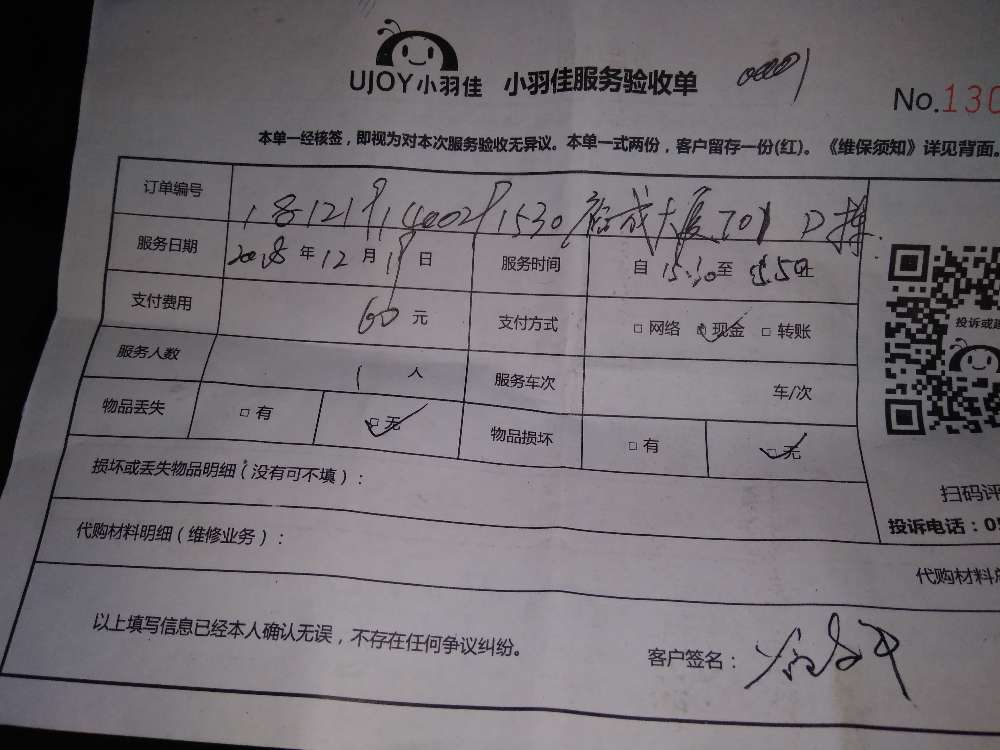 UJOY小羽佳 小羽佳服务验收单 00001
No.130
本单一经核签，即视为对本次服务验收无异议。本单一式两份，客户留存一份(红)。《维保须知》详见背面。
订单编号 大厦701
服务日期 2018年12月19日 服务时间 自15:30至
支付费用 60元 支付方式 □网络 □现金 □转账
服务人数 1人 服务车次 车/次
物品丢失 □有 □无 物品损坏 □有 □无
投诉或建
损坏或丢失物品明细（没有可不填）：
扫码评
投诉电话：05
代购材料明细（维修业务）：
代购材料总
以上填写信息已经本人确认无误，不存在任何争议纠纷。
客户签名：